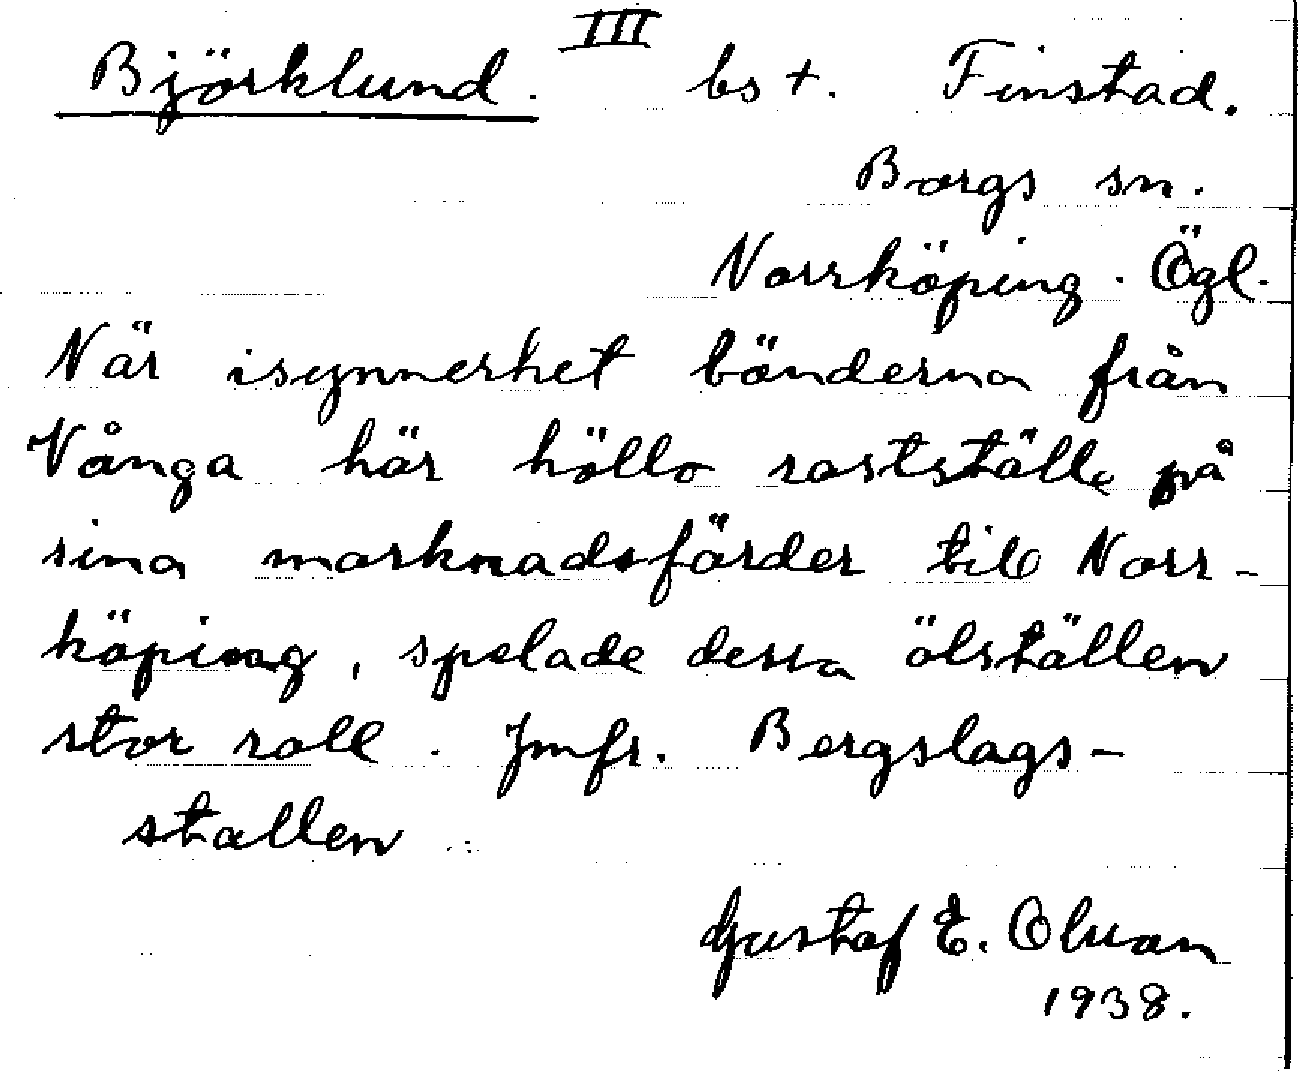 III
Björklund. bs +. Finstad.
Borgs sn.
Norrköping. Ögl.
När isynnerhet bönderna från
Vånga här höllo rastställe på
sina marknadsfärder till Norr-
köping, spelade dessa ölställen
stor roll. Jmfr. Bergslags-
stallen
Gustaf E. Olsson
1938.